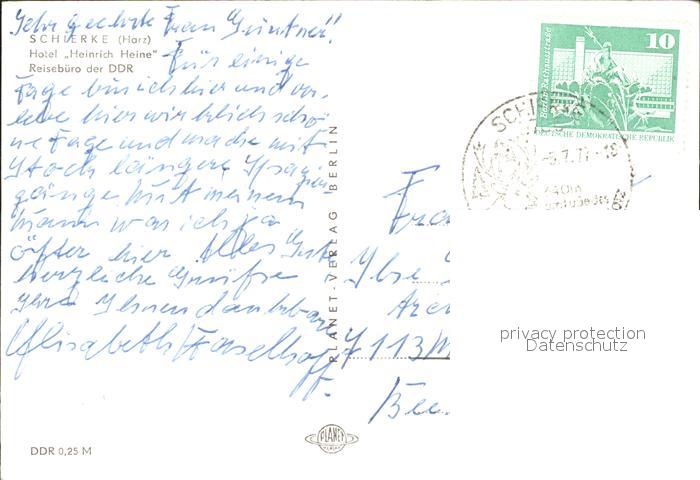 Sehr geehrte Frau Güntner!!
SCHIERKE (Harz)
Hotel „Heinrich Heine"
Reisebüro der DDR
Für einige
Tage bin ich hier und ver-
lebe hier wirklich schö-
ne Tage und mache mit
Stock längere Spazier
gänge. Mit meinem
Mann war ich ja
öfter hier. Alles Gute
herzliche Grüße
Ihre Ihnen dankbare
Elisabeth Haselhoff.
PLANET-VERLAG BERLIN
10
DEUTSCHE DEMOKRATISCHE REPUBLIK
SCHIERKE
-5.7.77-18
Frau
Ilse
7113
privacy protection
Datenschutz
PLANET
VERLAG
DDR 0,25 M